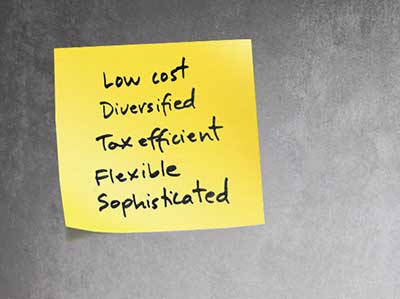 Low cost
Diversified
Tax efficient
Flexible
Sophisticated